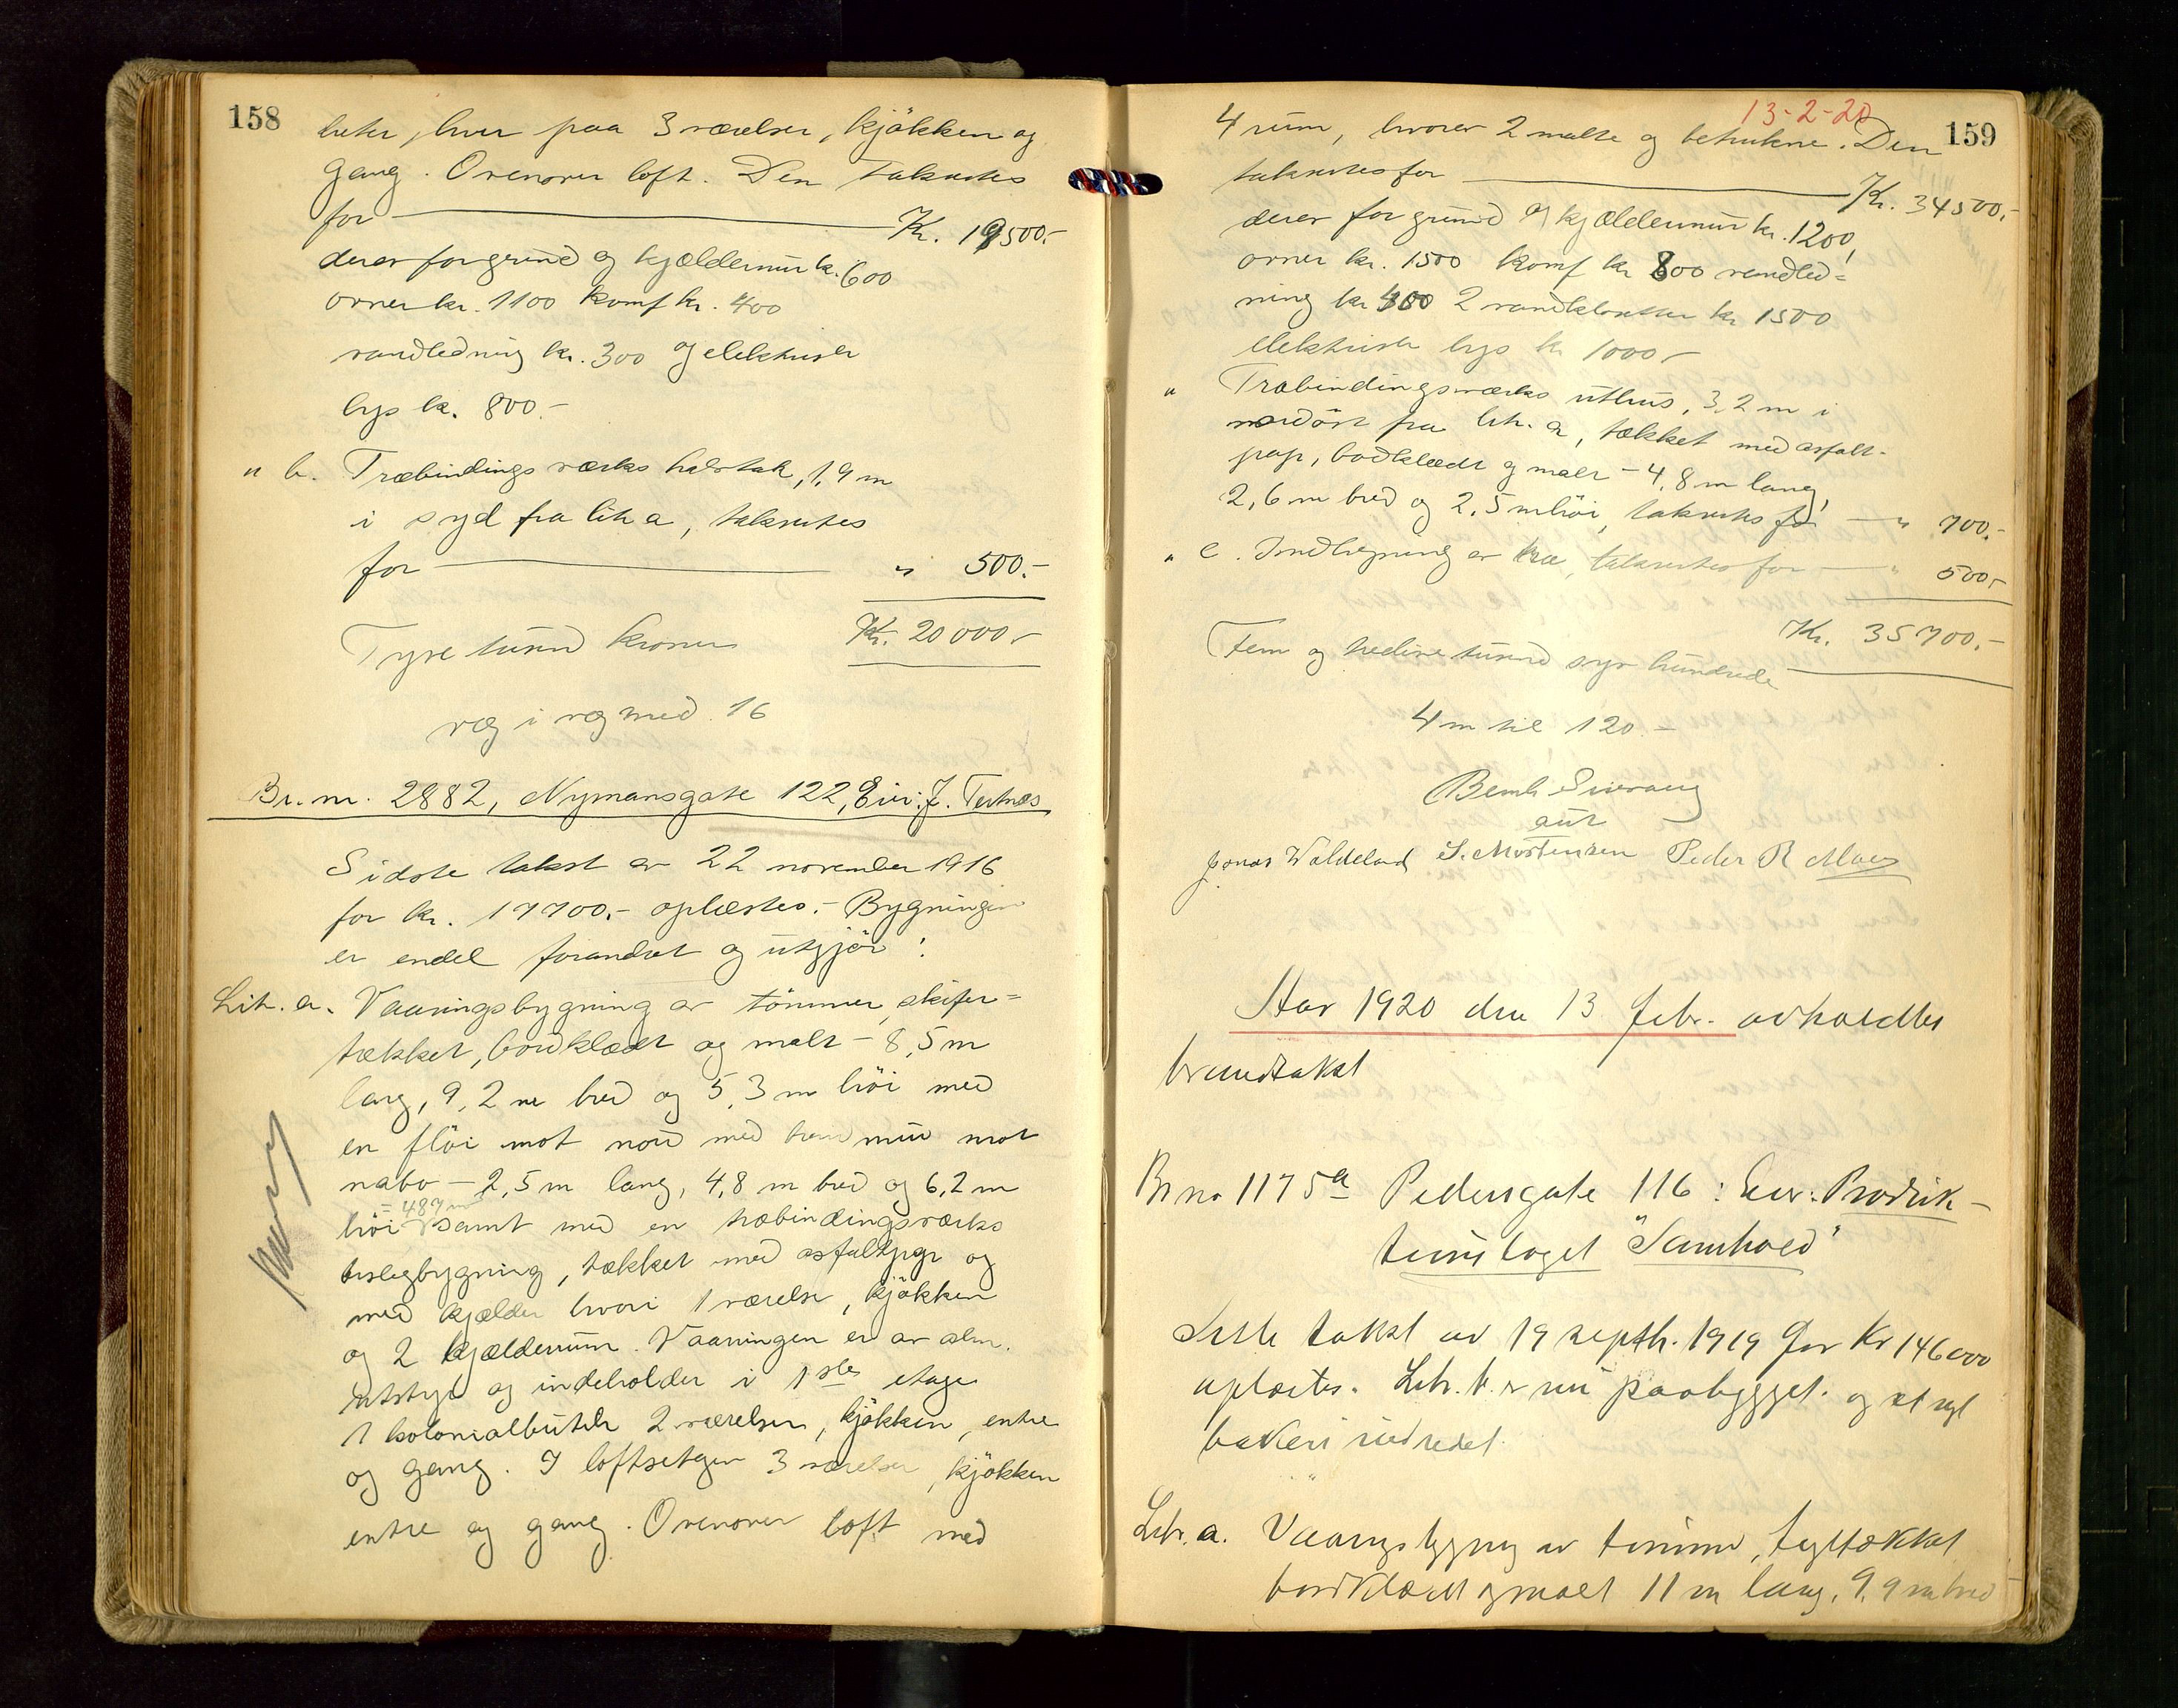 158
heter, hver paa 3 værelser, kjökken og
gang. Ovenover loft. Den takseres
for Kr. 19500.-
derav for grund og kjældermur kr. 600
ovner kr. 1100 komf kr. 400
vandledning kr. 300 og elektrisk
lys kr. 800.-
" b. Træbindingsværks halvtak, 1,9 m
i syd fra lit a, takseres
for " 500.-
Kr. 20000.-
Tyve tusind kroner
væg i væg med 16
Br.nr. 2882, Nymansgate 122, Eier: J. Tertnæs
Sidste takst av 22 november 1916
for kr. 17700.- oplæstes.- Bygningen
er endel forandret og utgjör:
Lit. a. Vaaningsbygning av tömmer, skifer=
tækket, bordklædt og malt - 8,5 m
lang, 9,2 m bred og 5,3 m höi med
en flöi mot nord med brandmur mot
nabo - 2,5 m lang, 4,8 m bred og 6,2 m
höi samt med en træbindingsværks
bislagbygning, tækket med asfaltpap og
med kjælder hvori 1 værelse, kjökken
og 2 kjælderrum. Vaaningen er av alm.
utstyr og indeholder i 1ste etage
1 kolonialbutik 2 værelser, kjökken, entre
og gang. I loftsetagen 3 værelser, kjökken
entre og gang. Ovenover loft med
13-2-20
159
4 rum, hvorav 2 malte og betrukne. Den
takseres for Kr. 34500.-
derav for grund og kjældermur kr. 1200,
ovner kr. 1500 komf kr 800 vandled=
ning kr 400 2 vandklosetter kr 1500
elektrisk lys kr 1000.-
" Træbindingsværks uthus, 3,2 m i
nordöst fra lit. a, tækket med asfalt-
pap, bordklædt og malt - 4,8 m lang,
2,6 m bred og 2,5 m höi, takseres for " 700.-
" c. Indhegning av træ, takseres for " 500.-
Kr. 35700.-
Fem og tredive tusind syv hundrede
4 m til 120.-
Bernh Sivevang
aut
Jonas Waldeland S. Mortensen Peder R Moes
Aar 1920 den 13 febr. avholdtes
brandtakst
Br no 1175a Pedersgate 116: Eier: Produk-
tionslaget "Samhold"
Siste takst av 19 septb. 1919 for Kr 146000
oplæstes. Litr. b. er nu paabygget og et nyt
bakeri indredet.
Litr. a. Vaaningsbygning av tømmer, tegltækket
bordklædt og malt 11 m lang, 9,9 m bred